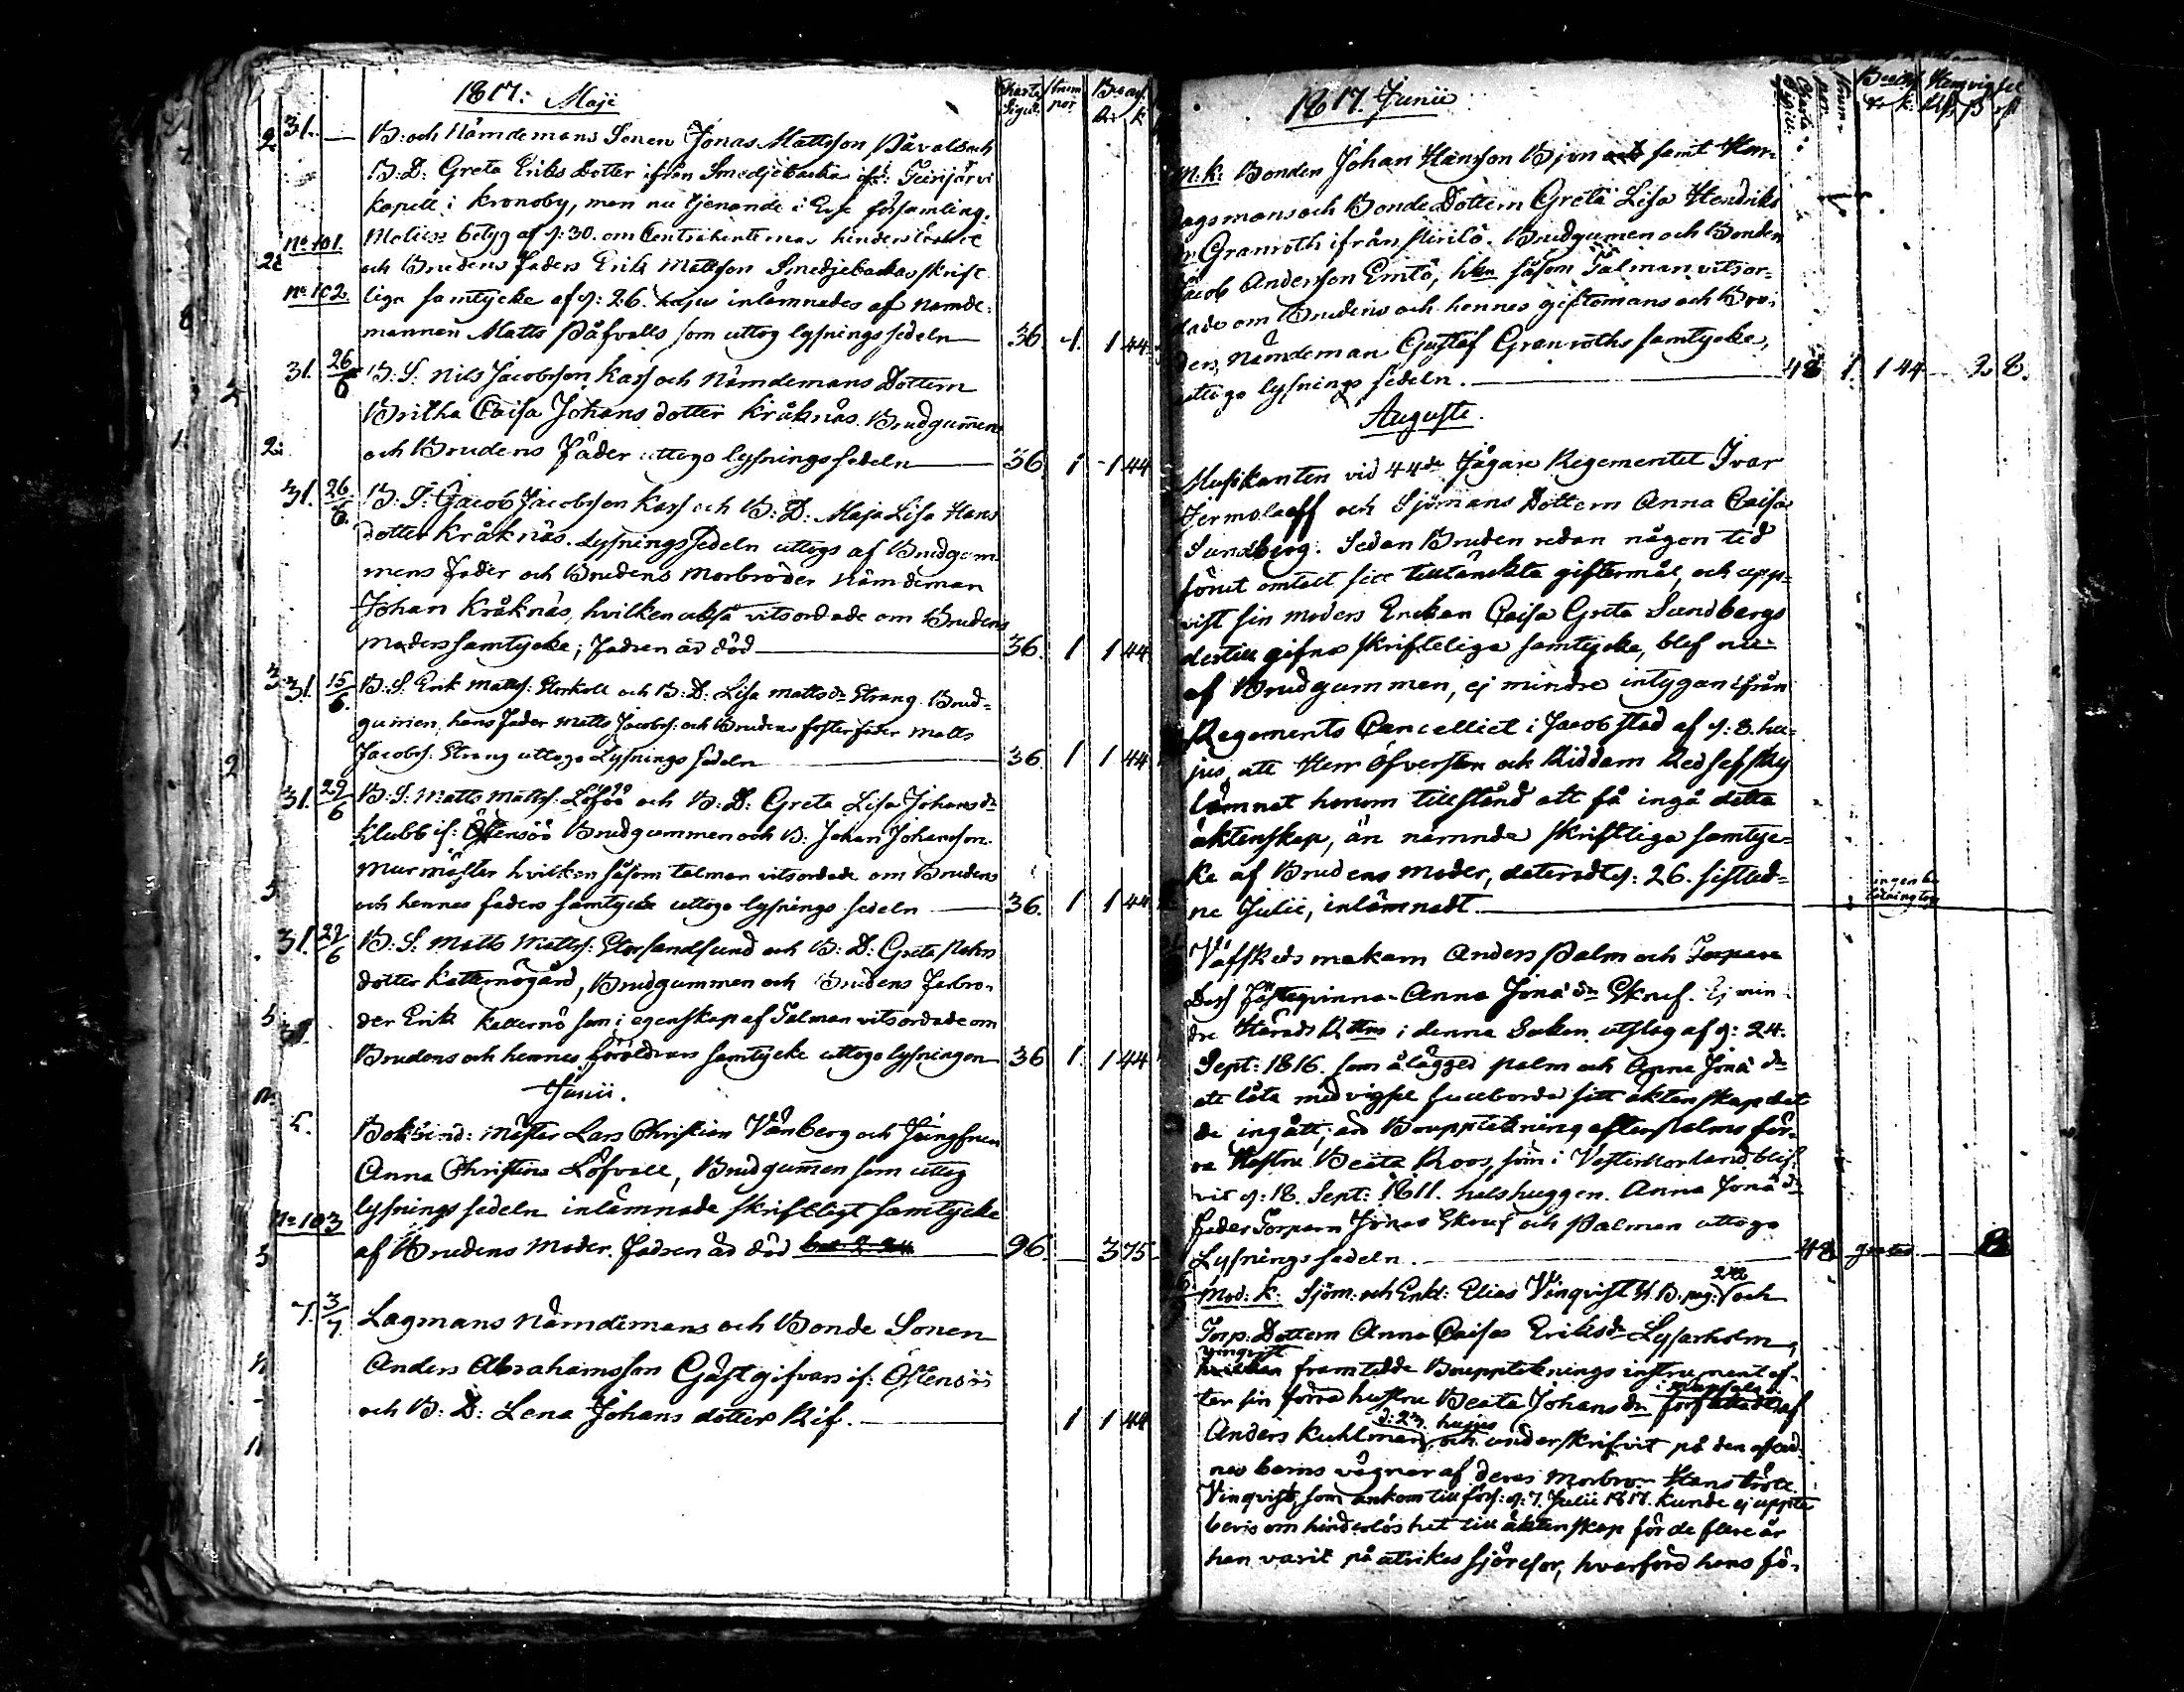 1817: Maji
Charta Sigill.
31. — B: och Nämdemans Sonen Jonas Mattsson Påvals och
B: D: Greta Eriks Dotter ifrån Smedjebacka if: Terijärvi
kapell i Kronoby, men nu tjenande i Esse församling.
No 101. betyg af d: 30. om Contrahenternas hinderlöshet
och Brudens Faders Erik Mattsson Smedjebackas skrift
No 102. liga samtycke af d: 26. hujus inlemnades af Nämde-
mannen Matts Påfvalls som uttog lysningssedeln — 36. 1. 1 44
31. 26/6 B: S: Nils Jacobsson Kass och Nämdemans Dottern
Britha Caisa Johans dotter Kråknäs. Brudgummen
och Brudens Fader uttogo lysningssedeln — 36 1 1 44
31. 26/6. B: S: Jacob Jacobsson Kass och B: D: Maja Lisa Hans
dotter Kråknäs. Lysningssedeln uttogs af Brudgum-
mens Fader och Brudens Morbroder Nämdeman
Johan Kråknäs, hvilken också vitsordade om Brudens
Moders samtycke; Fadren är död — 36. 1 1 44
31. 15/6. B: S: Erik Matts: Storkåll och B: D: Lisa Matts dr Strang. Brud-
gummen, hans Fader Matts Jacobs: och Brudens fosterfader Matts
Jacobs: Strang uttogo Lysnings sedeln — 36. 1 1 44
31. 29/6 B: S: Matts Matts: Löföö och B: D: Greta Lisa Johans dr
Klubb if: Östensöö Brudgummen och B: Johan Johansson
Murmäster hvilken såsom talman vitsordade om Brudens
och hennes faders samtycke uttogo lysnings sedeln — 36. 1 1 44
31. 29/6 B: S: Matts Matts: Storsandsund och B: D: Greta
dotter Katternögård, Brudgummen och Brudens Farbro-
der Erik Katternö som i egenskap af Talman vitsordade om
Brudens och hennes föräldrars samtycke uttogo lysningen — 36 1. 1 44
Junii.
5. Bokbind: mäster Lars Christian Vänberg och Jungfrun
Anna Christina Löfvall, Brudgummen som uttog
No 103 lysnings sedeln inlämnade skriftligt samtycke
af Brudens Moder. Fadren är död — 96. — 3 75
7. 3/7. Lagmans Nämdemans och Bonde Sonen
Anders Abrahamsson Gästgifvars if: Östensöö
och B: D: Lena Johans dotter Rif. — 1 1 44
1817 Junii
Charta Sigill. Hemvigsel
M. k: Bonden Johan Hansson Bjon samt Har-
dagsmans och Bonde Dottern Greta Lisa Hendriks
dr Granroth ifrån Pirilö. Brudgumen och Bonden
Jacob Andersson Emtö, hken såsom Talman vitsor-
dade om Brudens och hennes giftomans och Bro-
ders, Nämdeman Gustaf Granroths samtycke,
uttogo lysnings sedeln. — 48 1. 1 44 — 2 8.
Augusti.
Musikanten vid 44de Jägare Regementet Ivar
Jermolaeff och Sjömans Dottern Anna Caisa
Sundberg. Sedan Bruden redan någon tid
förut omtalt sitt tilltänckta giftermål, och upp-
vist sin Moders Enkan Caisa Greta Sundbergs
dertill gifna skrifteliga samtycke, blef nu
af Brudgummen, ej mindre intygan ifrån
Regements Cancelliet i Jacobstad af d: 8. hu-
jus, att Herr Öfversten och Riddaren Redsefsky
lämnat honom tillstånd att få ingå detta
äktenskap, än nämnde skriftliga samtyc-
ke af Brudens Moder, dateradt d: 26. sistled-
ne Julii, inlämnadt. — ingen be
talning tog
Väfskeds makarn Anders Palm och Torpare
Dess Fästeqvinna Anna Jona dr Skruf. Ej min-
dre Härads Rttns i denna Saken utslag af d: 24.
Sept: 1816. som ålägger Palm och Anna Jona dr
att låta med vigsel fullborda sitt äktenskap det
de ingått; än Boupptekning efter Palms för-
ra Hustru Beata Roos, som i Vesternorrland blif-
vit d: 18. Sept: 1811. halshuggen. Anna Jona dr
Fader Torparn Jonas Skruf och Palman uttogo
Lysnings sedeln. — 48 gratis —
Mod: k: Sjöm: och Enkl: Elias Vinqvist N. B. pag: 242 och
Torp: Dottern Anna Caisa Eriksdr Lysarholm,
Vinqvist framtedde Boupptecknings instrument ef-
ter sin förra hustru Beata Johans dr författadt af
Anders Kuhlman d: 23. hujus och underskrifvit på den afled-
nes barns vägnar af deras Morbror Hans
Vinqvist, som ankom till förs: d: 7. Julii 1817. kunde ej uppte
bevis om hinderlöshet till äktenskap för de flere år
han varit på utrikes sjöresor, hvarföre hans fö-